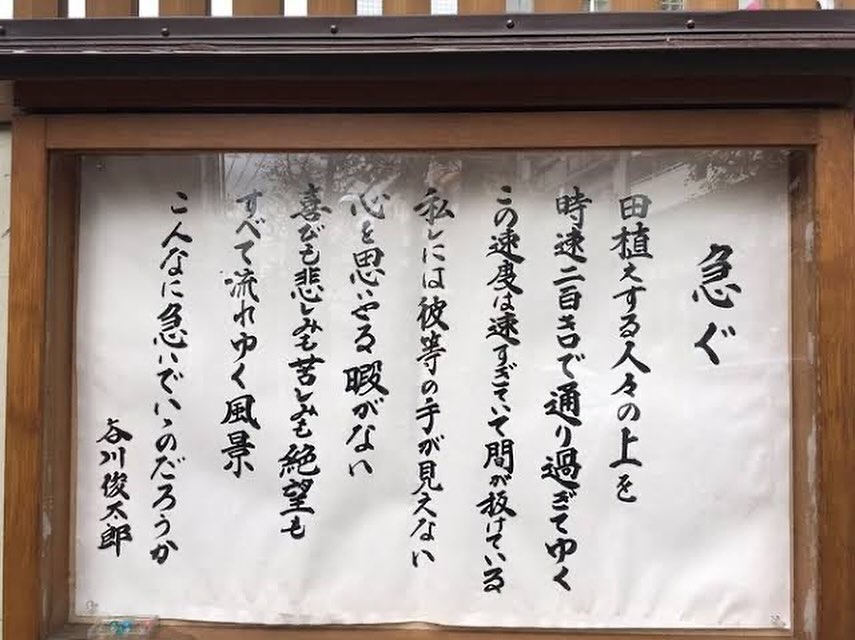 急ぐ
田植えする人々の上を
時速二百キロで通り過ぎてゆく
この速度は速すぎていて間が抜けている
私しには彼等の手が見えない
心を思いやる暇がない
喜びも悲しみも苦しみも絶望も
すべて流れゆく風景
こんなに急いでいゝのだろうか
谷川俊太郎